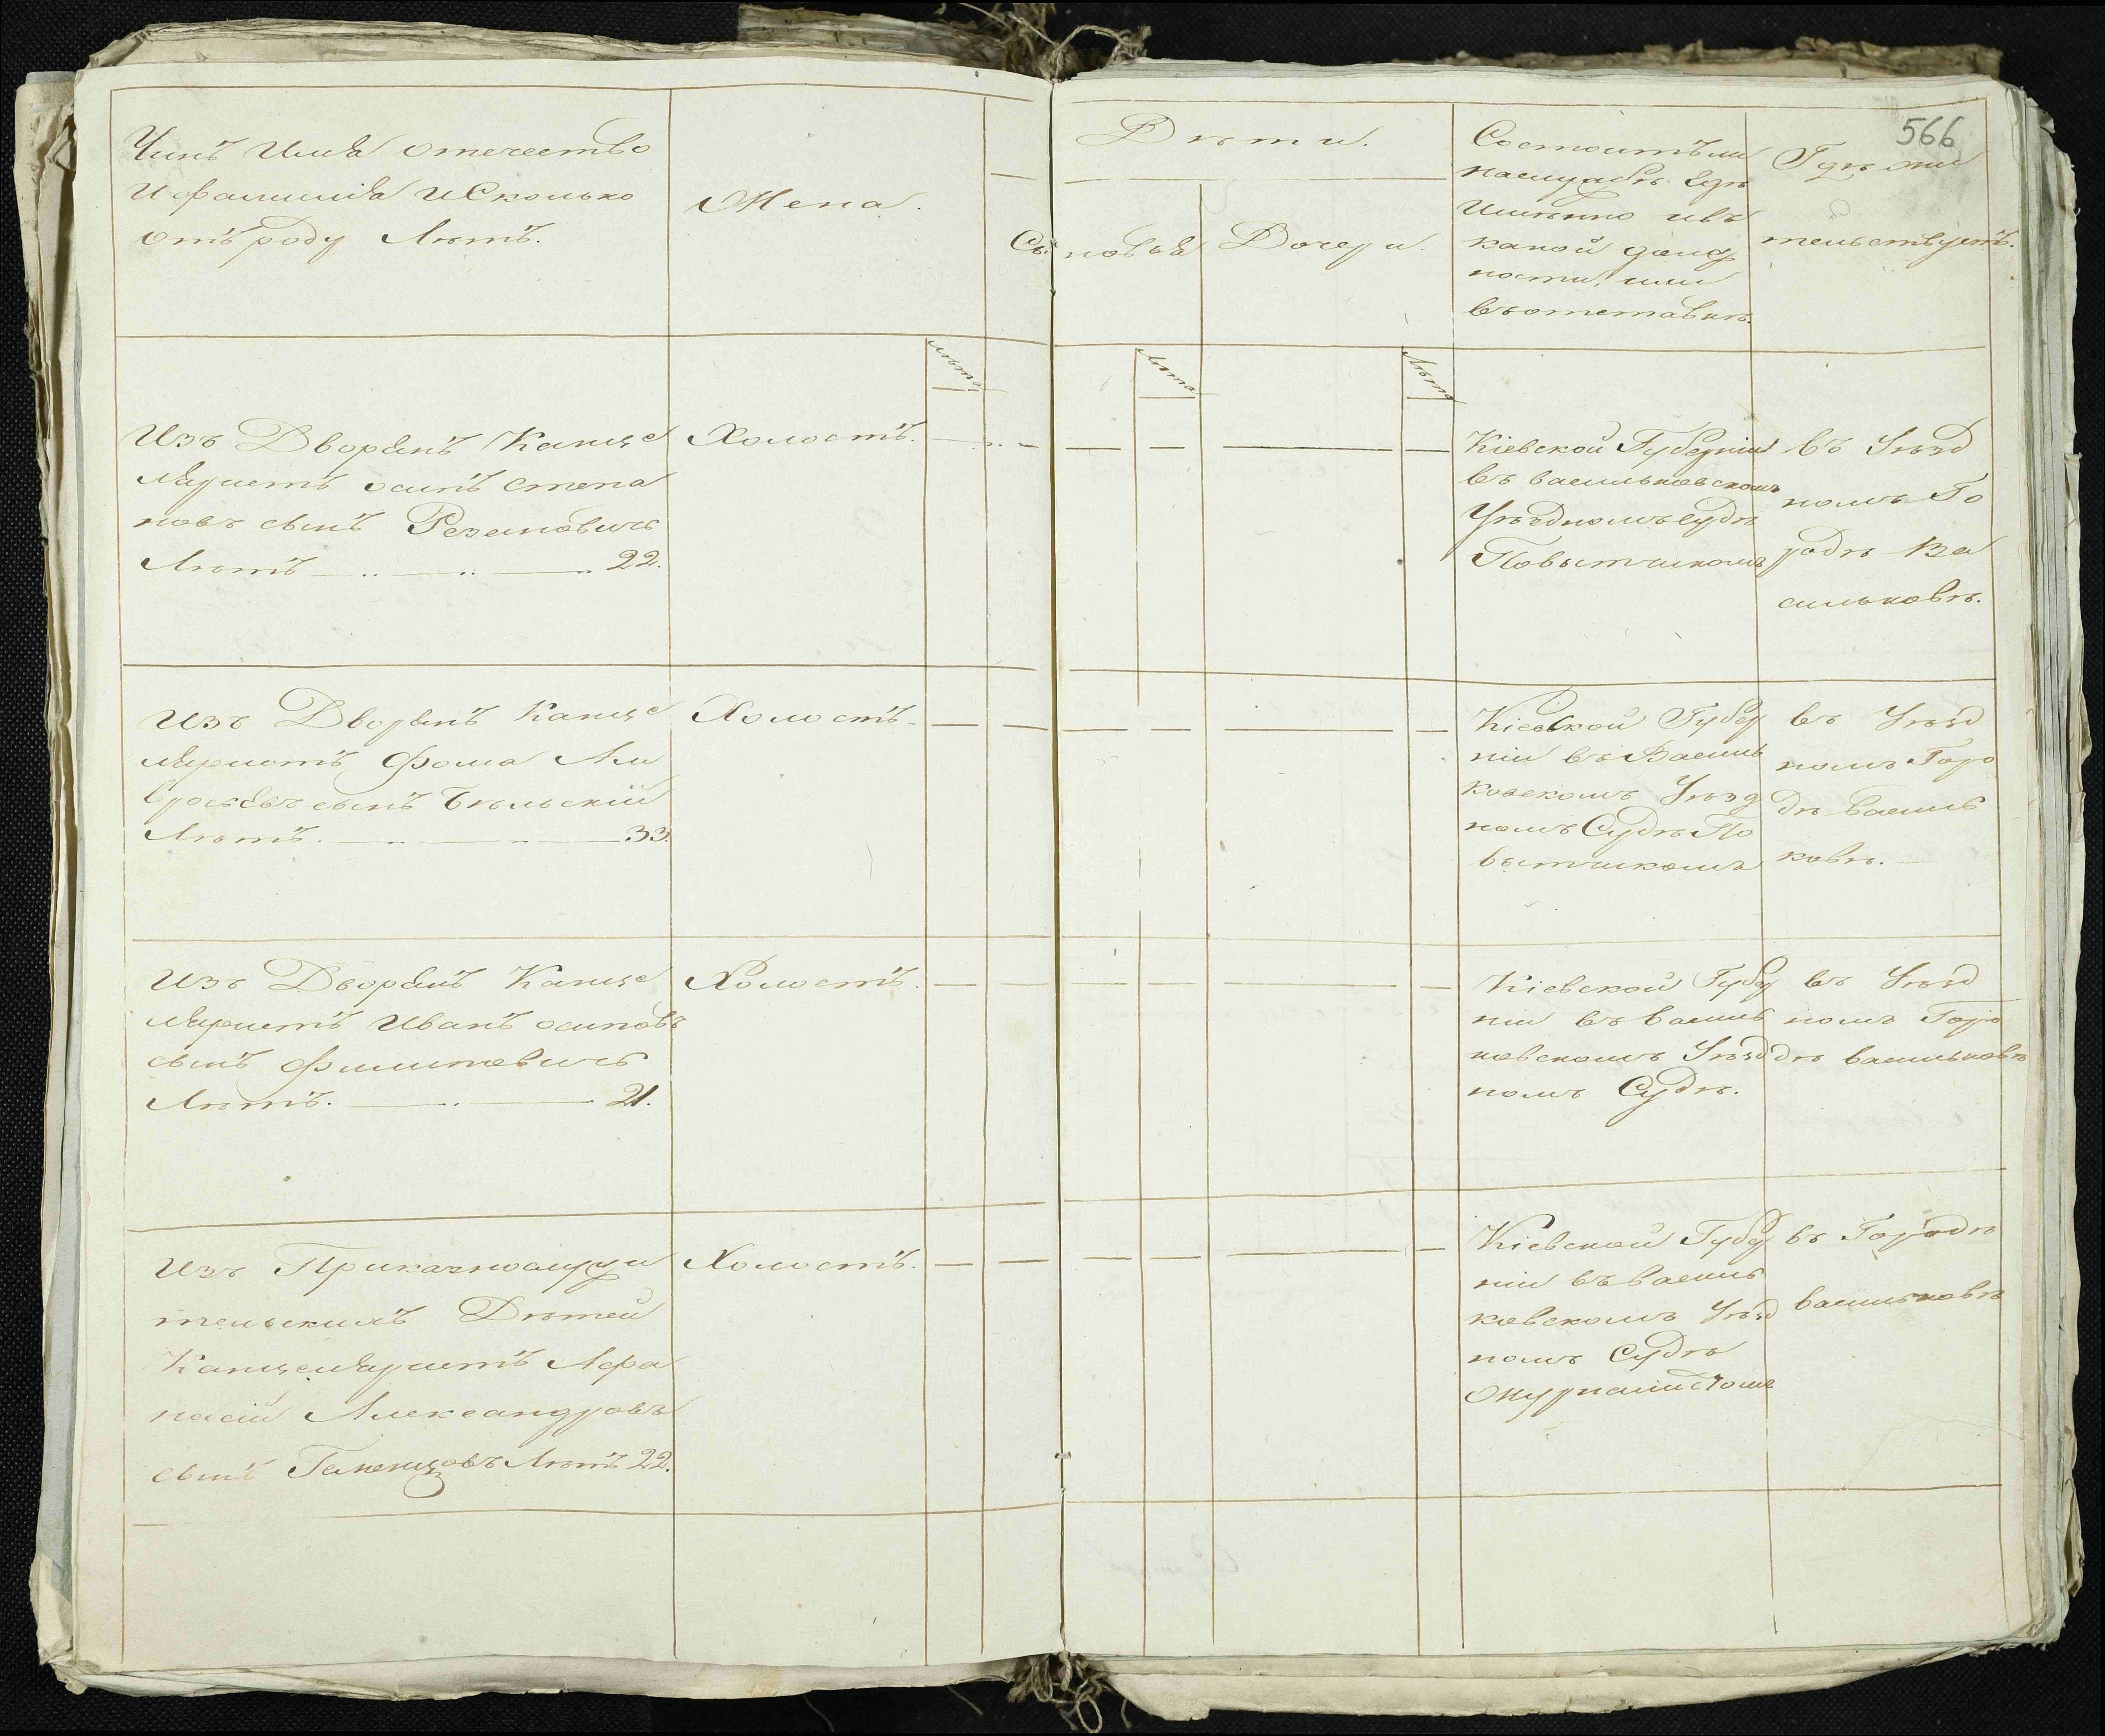 566
Чинъ Имя отечество
и фамилія и Сколько
отъ роду Лѣтъ.
Жена.
Дѣти.
Сыновья
Дочери.
Состоитъ ли
на службѣ где
имянно и въ
какой долж
ности, или
въ отставкѣ.
Где жи
тельствуетъ.
Лѣта
Лѣта
Лѣта
Изъ Дворянъ Канце
ляристъ осипъ Степа
новъ сынъ
Лѣтъ 22.
Холостъ.
Кіевской Губерніи
въ васильковскомъ
Уѣздномъ Судѣ
Повытчикомъ
въ Уѣзд
номъ Го
родѣ Ва
сильковѣ.
Изъ Дворянъ Канце
ляристъ Фома Ам
вросіевъ сынъ Бѣльскій
Лѣтъ. 33.
Холостъ
Кіевской Губер
ніи въ Василь
ковскомъ Уѣзд
номъ Судѣ По
вытчикомъ
въ Уѣзд
номъ Горо
дѣ Василь
ковѣ.
Изъ Дворянъ Канце
ляристъ Иванъ осиповъ
сынъ Филиповичъ
Лѣтъ. 21.
Холостъ.
Кіевской Губер
ніи въ василь
ковскомъ Уѣзд
номъ Судѣ.
въ Уѣзд
номъ Горо
дѣ васильковѣ
Изъ Приказнослужи
тельскихъ Дѣтей
Канцеляристъ Афа
насій Александровъ
сынъ Лѣтъ 22.
Холостъ.
Кіевской Губер
ніи въ василь
ковскомъ Уѣзд
номъ Судѣ
Журналистомъ
въ Городѣ
васильковѣ